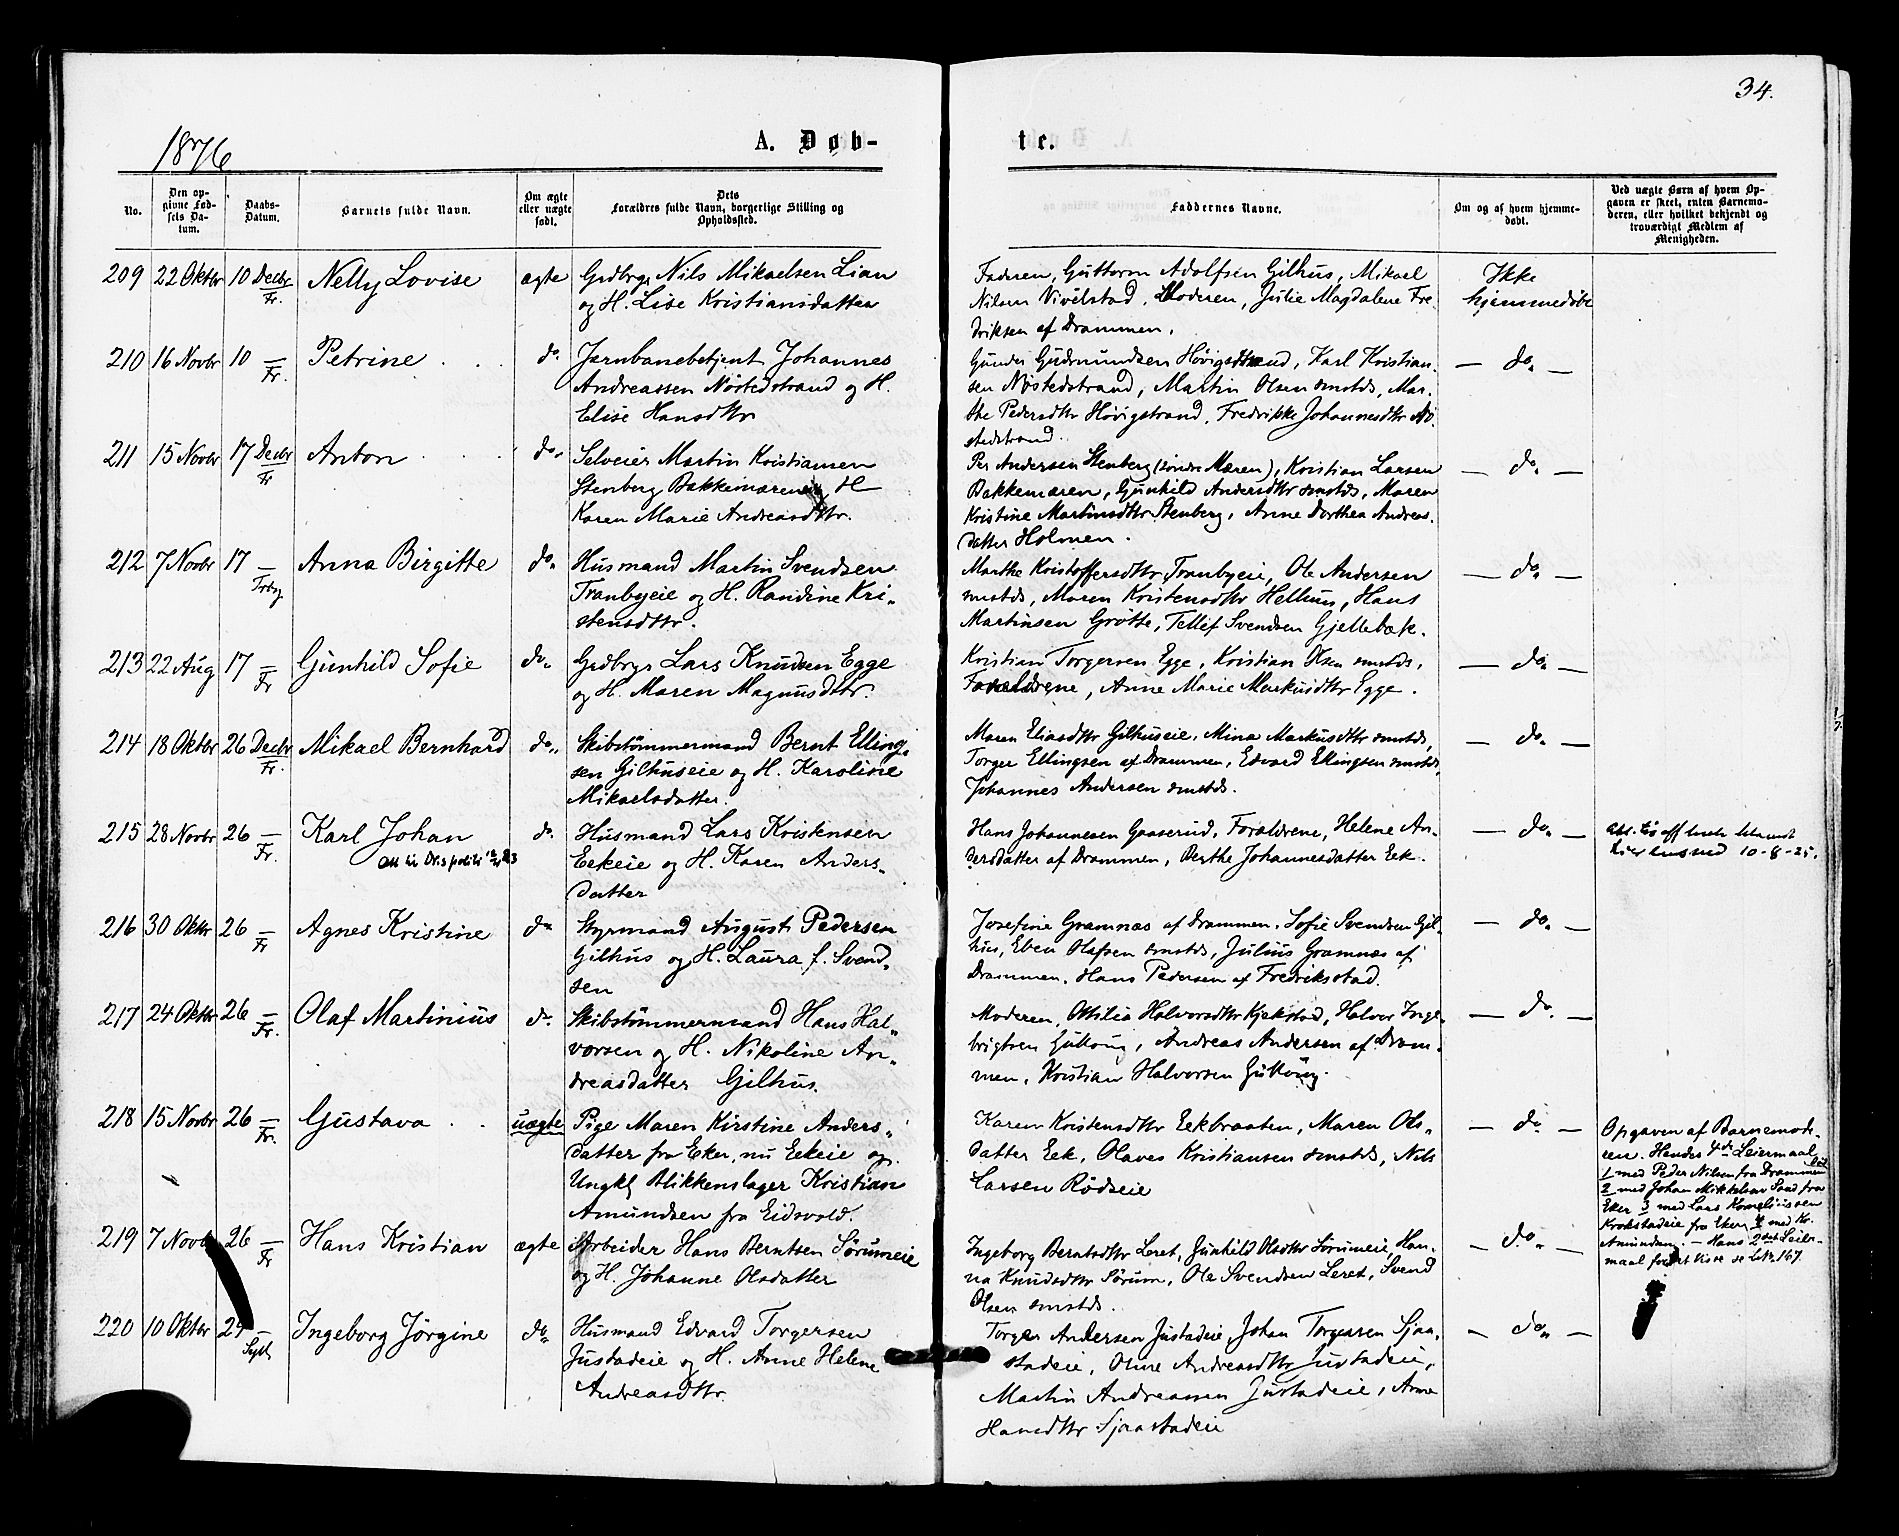 34.
1876
A. Døb-
te.
No.
Den op-
givne Fød-
sels Da-
tum.
Daabs-
Datum.
Barnets fulde Navn.
Om ægte
eller uægte
født.
Dets
Forældres fulde Navn, borgerlige Stilling og
Opholdssted.
Faddernes Navne.
Om og af hvem hjemme-
døbt.
Ved uægte Børn af hvem Op-
gaven er skeet, enten Barnemo-
deren, eller hvilket bekjendt og
troværdigt Medlem af
Menigheden.
209 22 Oktbr 10 Decbr Fr. Nelly Lovise ægte Grdbrgr Nils Mikaelsen Lian
og H. Lise Kristiansdatter
Faderen, Guttorm Adolfsen Gilhus, Mikael
Nilsen Vivelstad, Moderen, Julie Magdalene Fre-
driksen af Drammen.
Ikke
hjemmedøbt
210 16 Novbr 10 — Fr. Petrine do. Jernbanebetjent Johannes
Andreassen Nøstedstrand og H.
Elise Hansdttr
Gunder Gudmundsen Høvigstrand, Karl Kristian-
sen Nøstedstrand, Martin Olsen smstds, Mar-
the Pedersdttr Høvigstrand, Fredrikke Johannesdttr Nø-
stedstrand.
— do. —
211 15 Novbr 17 Decbr Fr Anton do. Selveier Martin Kristiansen
Stenberg Bakkemæren og H
Karen Marie Andreasdttr.
Per Andersen Stenberg (søndre Mæren), Kristian Larsen
Bakkemæren, Gunhild Andersdttr smstds, Maren
Kristine Martinsdttr Stenberg, Anne Dorthea Andreas-
datter Holmen.
— do. —
212 7 Novbr 17 — Trbg Anna Birgitte do. Husmand Martin Svendsen
Tranbyeie og H. Randine Kri-
stensdttr.
Marthe Kristoffersdttr Tranbyeie, Ole Andersen
smstds, Maren Kristensdttr Hellum, Hans
Martinsen Grøtte, Tellef Svendsen Gjellebæk.
— do. —
213 22 Aug 17 — Fr Gunhild Sofie do. Grdbrgr Lars Knudsen Egge
og H. Maren Magnusdttr.
Kristian Torgersen Egge, Kristian Olsen smstds,
Forældrene, Anne Marie Markusdttr Egge.
— do. —
214 18 Oktbr 26 Decbr Fr. Mikael Bernhard do. Skibstømmermand Bernt Elling-
sen Gilhuseie og H. Karoline
Mikaelsdatter.
Maren Eliasdttr Gilhuseie, Mina Markusdttr smstds,
Torger Ellingsen af Drammen, Edvard Ellingsen smstds,
Johannes Andersen smstds.
— do. —
215 28 Novbr 26 — Fr. Karl Johan do. Husmand Lars Kristensen
Eekeie og H. Karen Anders-
datter
Hans Johannesen Gaaserud, Forældrene, Helene An-
dersdatter af Drammen, Berthe Johannesdatter Eek.
— do. —
10-8-25.
216 30 Oktbr 26 — Fr Agnes Kristine do. Styrmand August Pedersen
Gilhus og H. Laura f. Svend-
sen
Josefine Gramnæs af Drammen, Sofie Svendsen Gil-
hus, Eben Olafsen smstds, Julius Gramnæs af
Drammen, Hans Pedersen af Fredriksstad.
— do. —
217 24 Oktbr 26 — Fr. Olaf Martinius do. Skibstømmermand Hans Hal-
vorsen og H. Nikoline An-
dreasdatter Gilhus.
Moderen, Ottilia Halvorsdttr Kjekstad, Halvor Inge-
brigtsen Gulkoug, Andreas Andersen af Dram-
men, Kristian Halvorsen Gulkoug.
— do. —
218 15 Novbr 26 — Fr. Gustava uægte Pige Maren Kirstine Anders-
datter fra Eker, nu Eekeie og
Ungkl Blikkenslager Kristian
Amundsen fra Eidsvold.
Karen Kristensdttr Eekbraaten, Maren Ols-
datter Eek, Olaves Kristiansen smstds, Nils
Larsen Rödseie
— do. —
Opgaven af Barnemode-
ren. Hendes 4de Leiermaal
1 med Peder Nilsen fra Drammen
2 med Johan Mikkelsen Sand fra
Eker 3 med Lars Korneliussen
Krokstadeie fra Eker, 4 med Kr.
Amundsen. — Hans 2det Leier-
maal 167.
219 7 Novbr 26 — Fr Hans Kristian ægte Arbeider Hans Berntsen Sörumeie
og H. Johanne Olsdatter
Ingeborg Berntsdttr Leret, Gunhild Olsdttr Sörumeie, Han-
na Knudsdttr Sörum, Ole Svendsen Leret, Svend
Olsen smstds.
— do. —
220 10 Oktbr 29 — Sylt Ingeborg Jörgine do. Husmand Edvard Torgersen
Justadeie og H. Anne Helene
Andreasdttr.
Torger Andersen Justadeie, Johan Torgersen Sjaa-
stadeie, Oline Andreasdttr Justadeie,
Martin Andreassen Justadeie, Anne
Hansdttr Sjaastadeie
— do. —